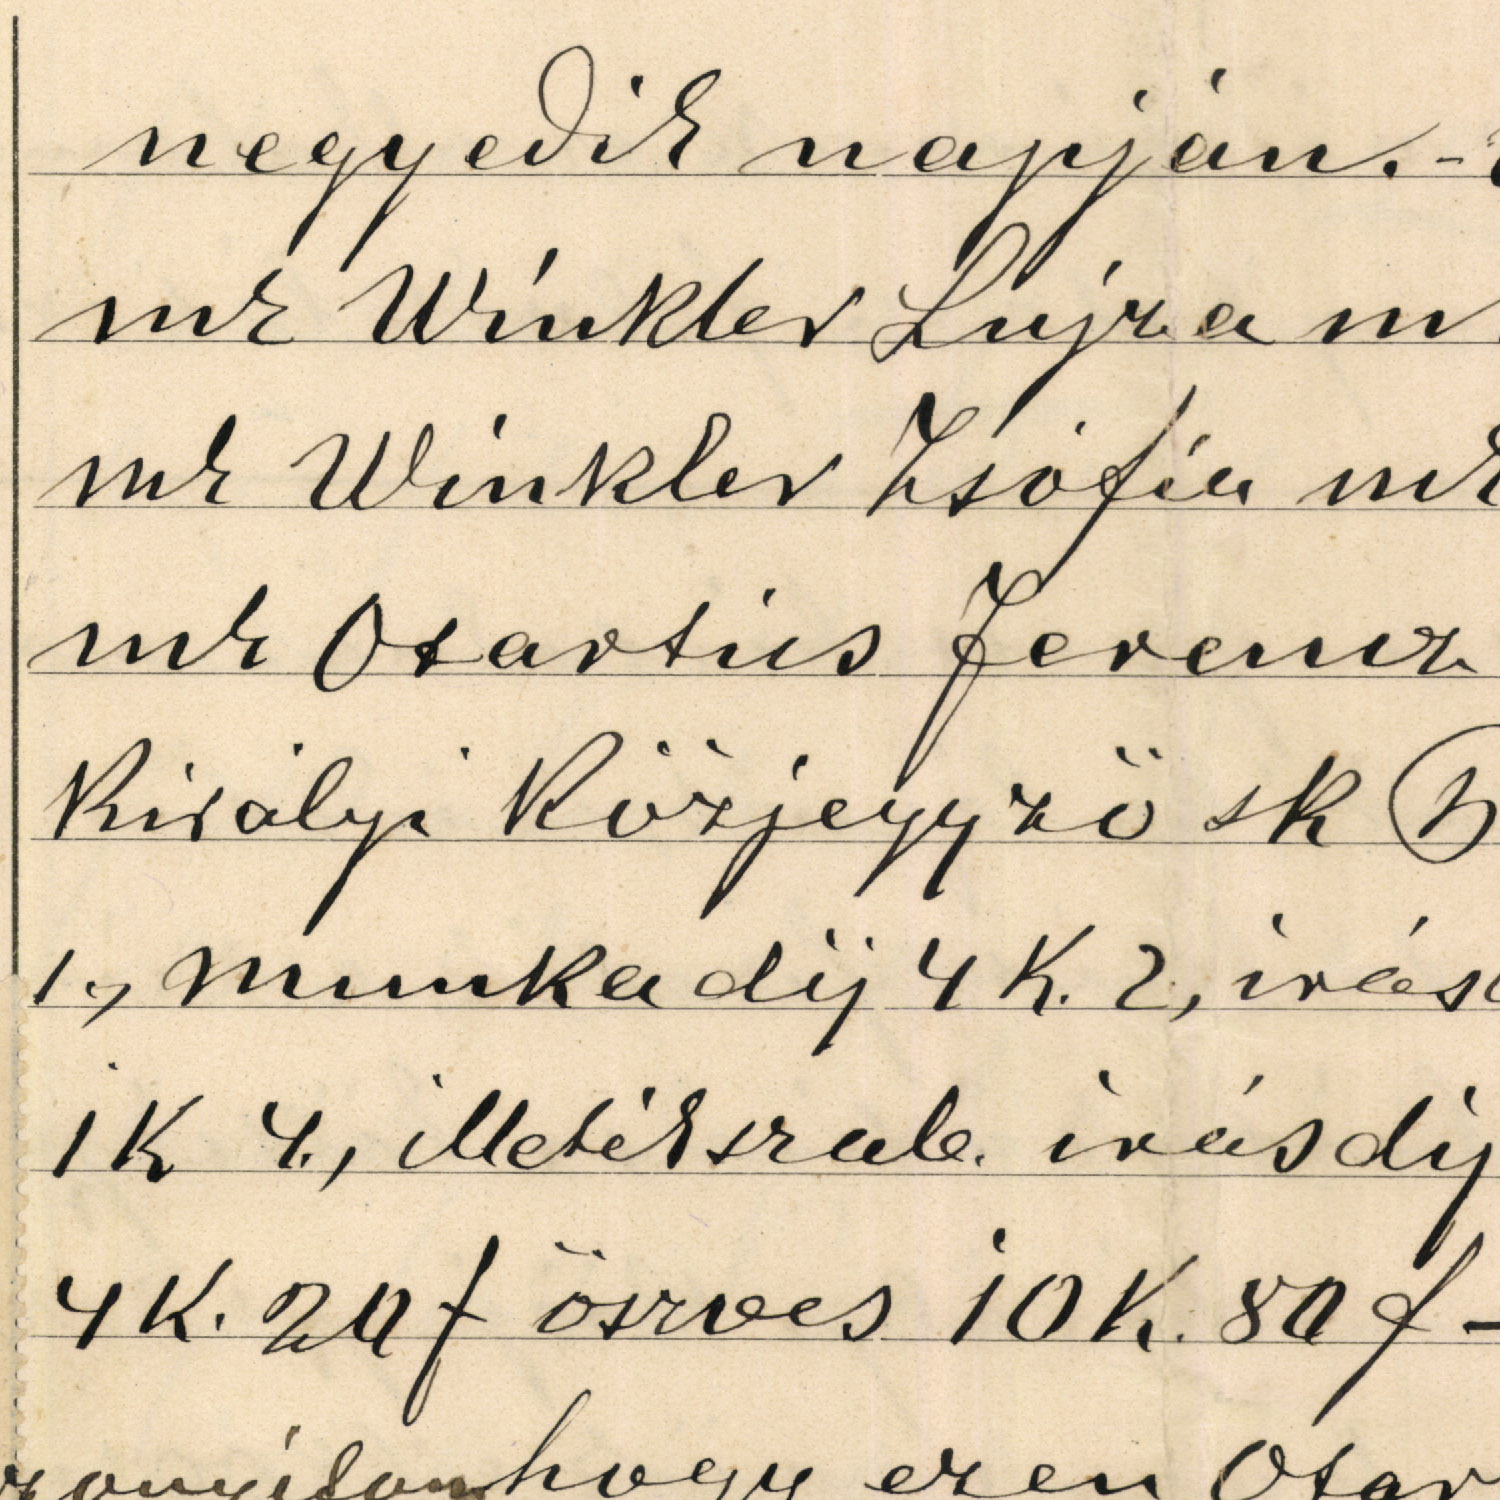 negyedik napján. -
mk Winkler Lujza m
mk Winkler Zsófia mk
mk Osartius Ferencz
Királyi Közjegyző sk
1., munkadíj 4 K. 2, irás
1 K 4., illetékszab. irásdíj
4 K. 20 f összves 10 K. 80 f -
hogy ezen Osar